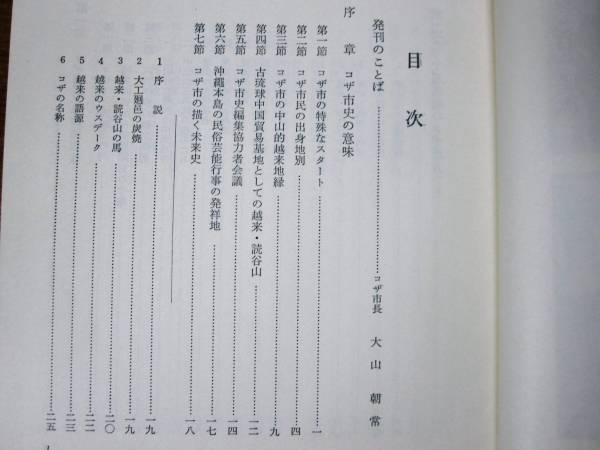 目次
発刊のことば……………コザ市長 大山朝常
序章 コザ市史の意味
第一節 コザ市の特殊なスタート……………一
第二節 コザ市民の出身地別……………四
第三節 コザ市の中山的越来地縁……………九
第四節 古琉球中国貿易基地としての越来・読谷山……………一二
第五節 コザ市史編集協力者会議……………一四
第六節 沖縄本島の民俗芸能行事の発祥地……………一七
第七節 コザ市の描く未来史……………一八
1 序説……………一九
2 大工廻邑の炭焼……………一九
3 越来・読谷山の馬……………一九
4 越来のウスデーク……………二〇
5 越来の語源……………二三
6 コザの名称……………二五
1